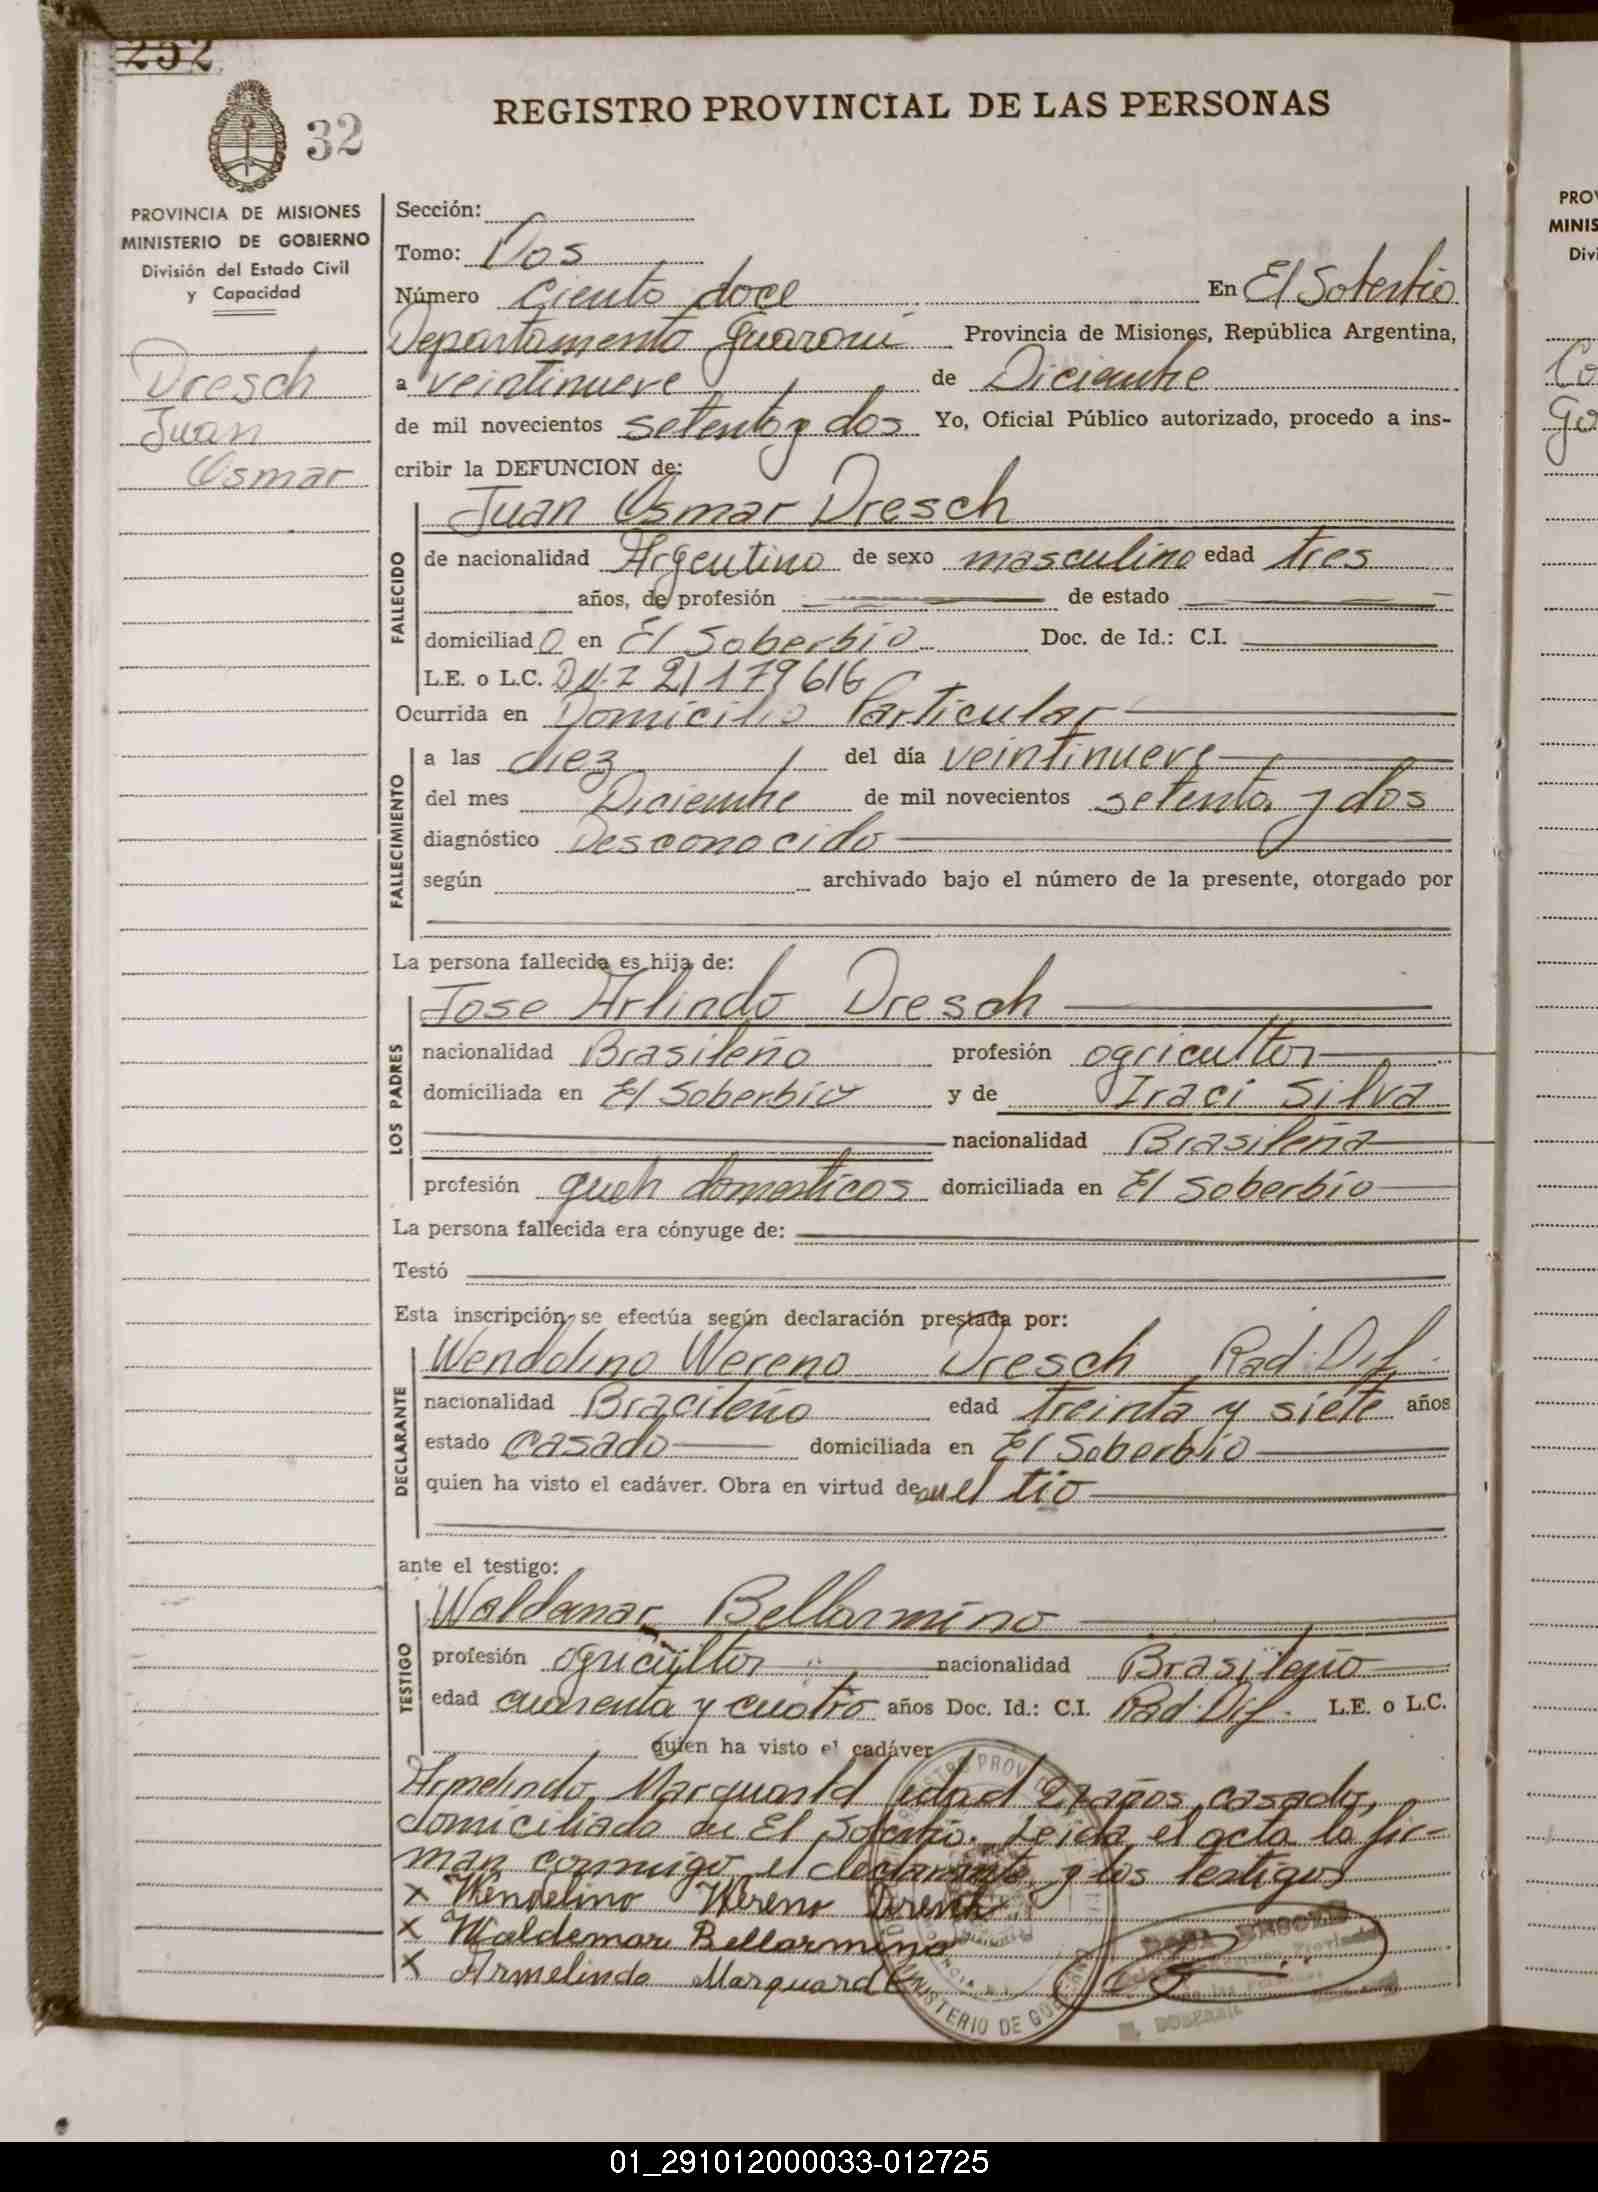 252
32
REGISTRO PROVINCIAL DE LAS PERSONAS
PROVINCIA DE MISIONES
MINISTERIO DE GOBIERNO
División del Estado Civil
y Capacidad
Dresch
Juan
Osmar
Sección:
Tomo: Dos
Número Ciento doce En El Soberbio
Departamento Guaraní Provincia de Misiones, República Argentina,
a veintinueve de Diciembre
de mil novecientos setenta y dos Yo, Oficial Público autorizado, procedo a ins-
cribir la DEFUNCION de:
Juan Osmar Dresch
FALLECIDO
de nacionalidad Argentino de sexo masculino edad tres
años, de profesión de estado
domiciliado en El Soberbio Doc. de Id.: C.I.
L.E. o L.C. 21179616
Ocurrida en Domicilio Particular
FALLECIMIENTO
a las diez del día veintinueve
del mes Diciembre de mil novecientos setenta y dos
diagnóstico Desconocido
según archivado bajo el número de la presente, otorgado por
La persona fallecida es hija de:
LOS PADRES
Jose Arlindo Dresch
nacionalidad Brasileño profesión agricultor
domiciliada en El Soberbio y de Iraci Silva
nacionalidad Brasileña
profesión queh domesticos domiciliada en El Soberbio
La persona fallecida era cónyuge de:
Testó
Esta inscripción se efectúa según declaración prestada por:
DECLARANTE
Wendolino Wereno Dresch Rad. Dif.
nacionalidad Bracileño edad treinta y siete años
estado casado domiciliada en El Soberbio
quien ha visto el cadáver. Obra en virtud de el tio
ante el testigo:
TESTIGO
Waldemar Bellarmino
profesión agricultor nacionalidad Brasileño
edad cuarenta y cuatro años Doc. Id.: C.I. Rad. Dif. L.E. o L.C.
quien ha visto el cadáver
Armelindo Marquardd edad 27 años, casado,
domiciliado en El Soberbio. Leida el acta la fir-
man conmigo el declarante y los testigos
x Wendelino Wereno Dresch
x Waldemar Bellarmino
x Armelindo Marquardt
MINISTERIO DE GOBIERNO
PROV
MINIS
Divi
Co
Go
01_291012000033-012725